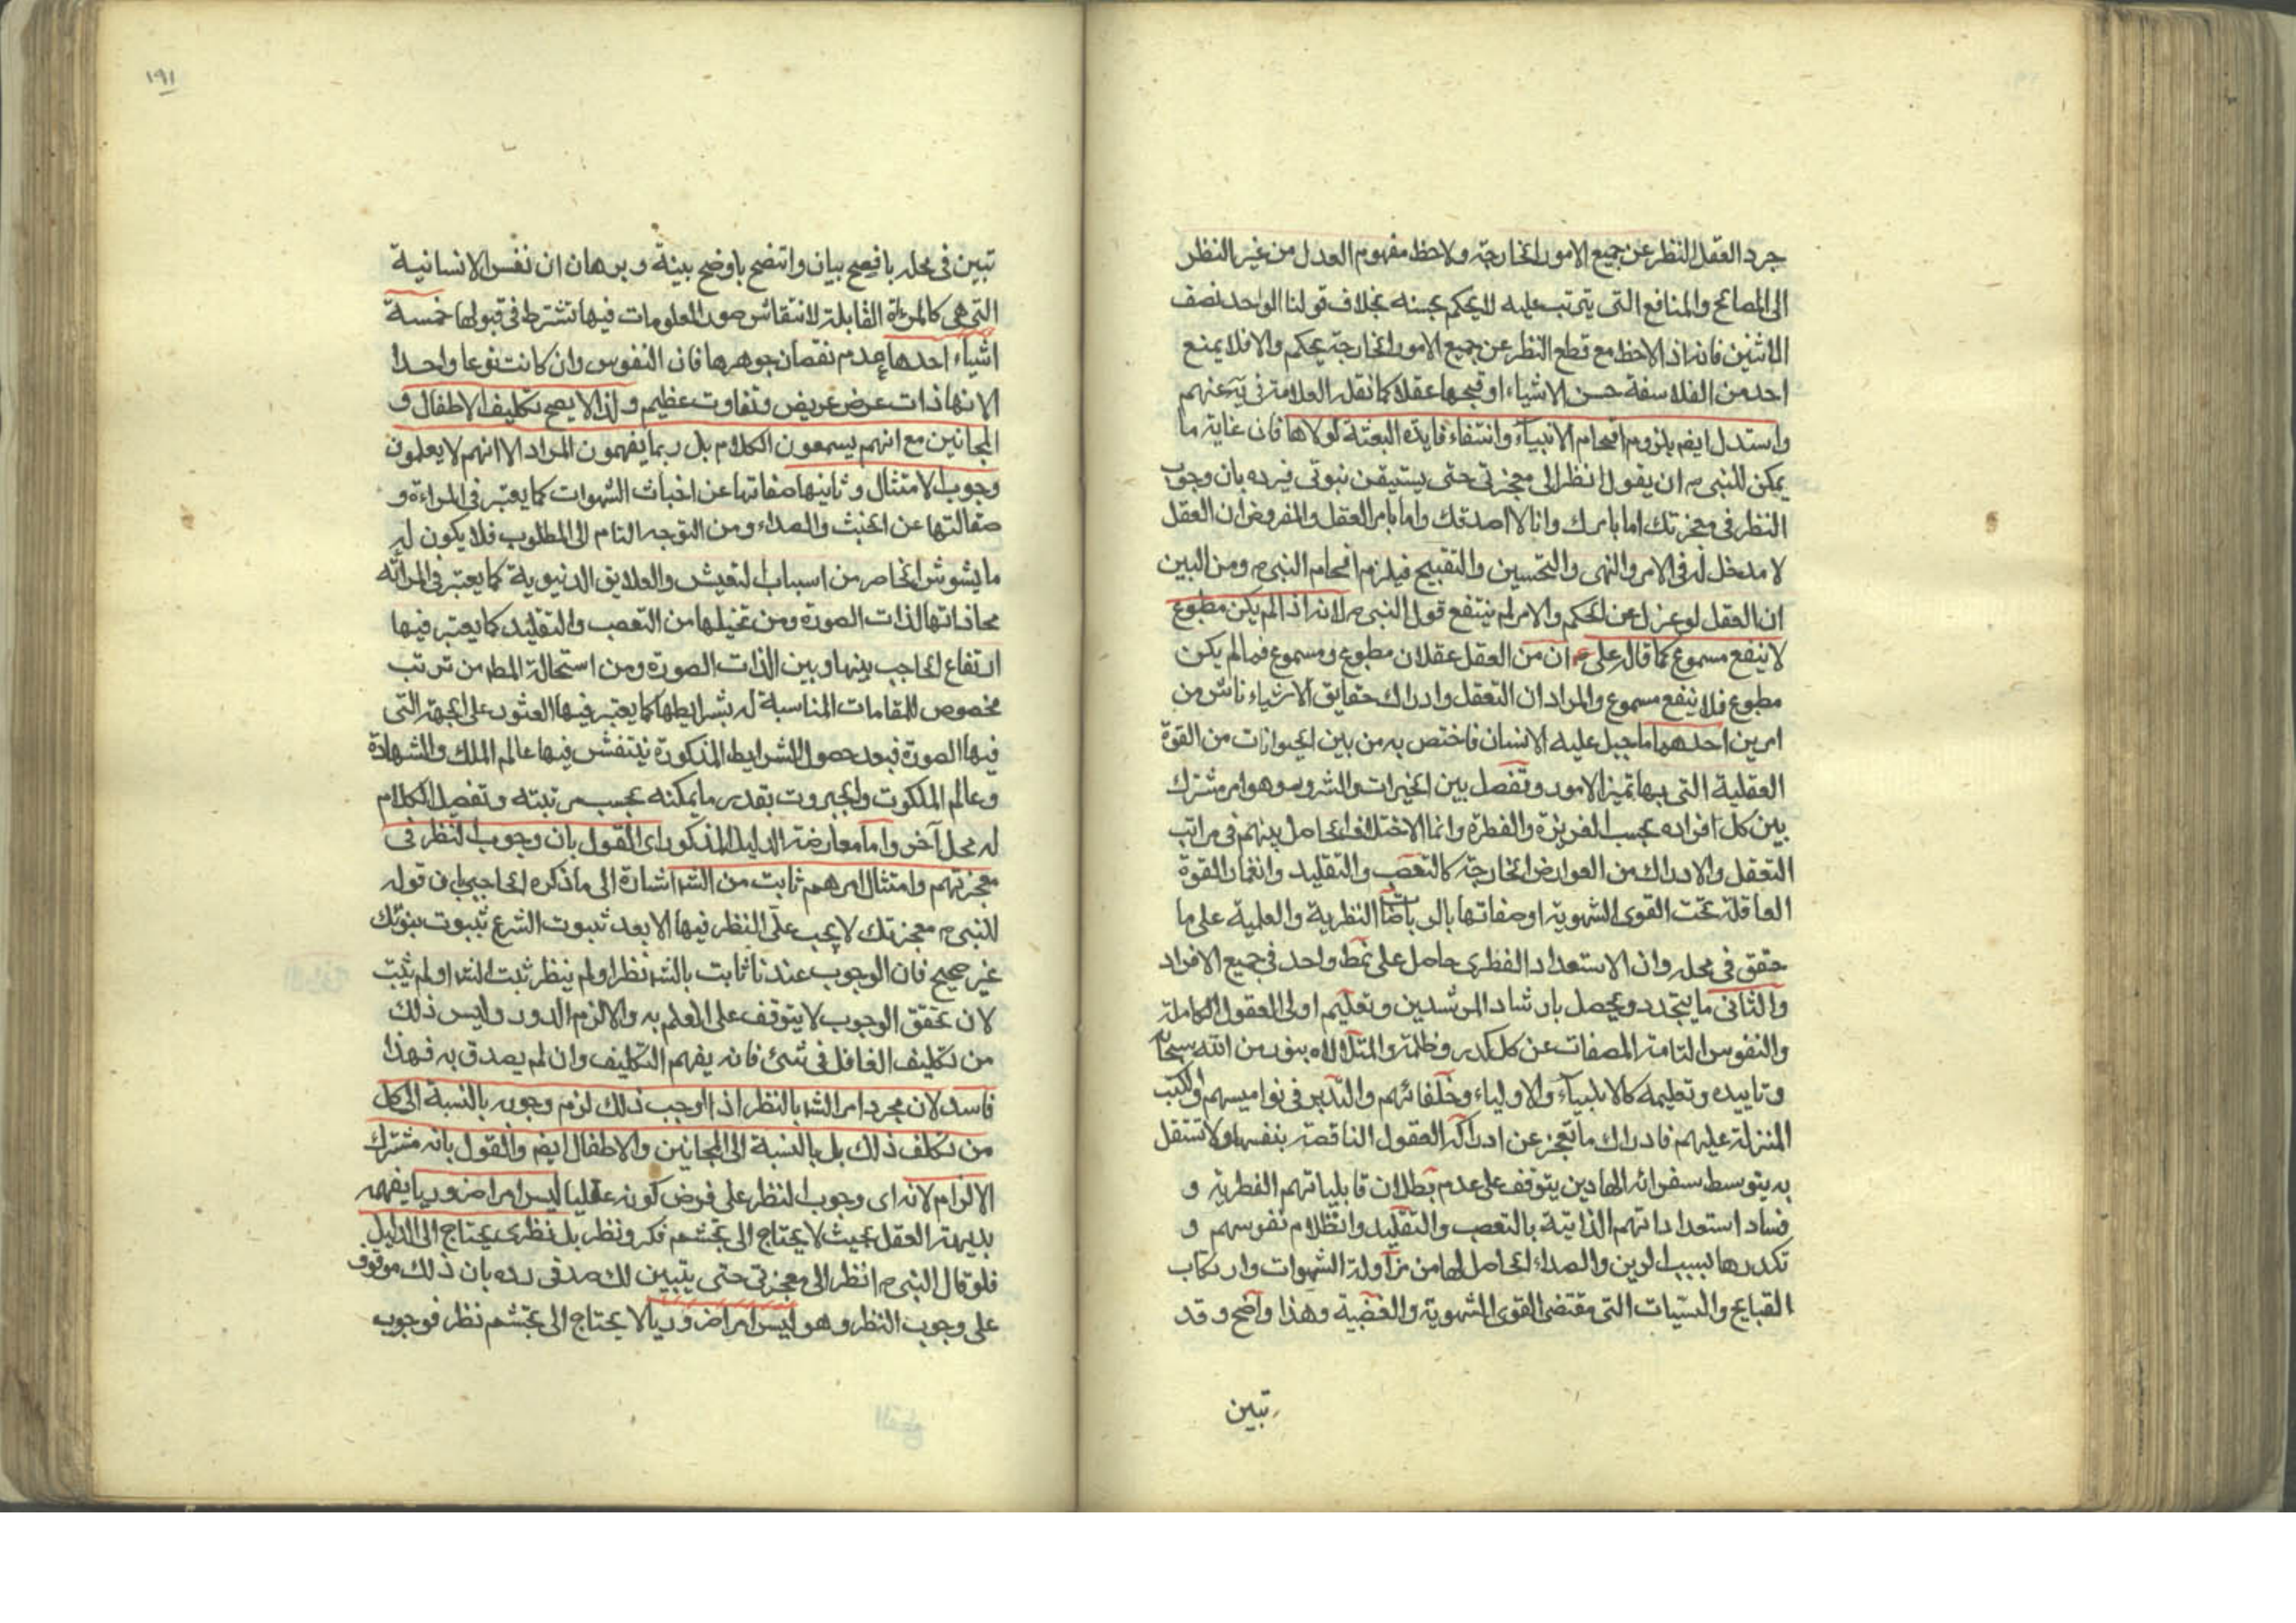 جرد العقل النظر عن جميع الامور الخارجة ولاحظ مفهوم العدل من غير النظر
الى المصالح والمنافع التى يترتب عليه لا يحكم بحسنه بخلاف قولنا الواحد نصف
الاثنين فانه اذا لاحظ مع قطع النظر عن جميع الامور الخارجة يحكم والا فلا يمنع
احد من الفلاسفة حسن الاشياء او قبحها عقلا كما نقله العلامة فى عنهم
واستدل ايضا بلزوم افحام الانبياء وانتفاء فايدة البعثة لولاها فان غاية ما
يمكن للنبى ان يقول انظر الى معجزتى حتى يستيقن نبوتى فيرده بان وجوب
النظر فى معجزتك اما بامرك وانا لا اصدقك واما بامر العقل والمفروض ان العقل
لا مدخل له فى الامر والنهى والتحسين والتقبيح فيلزم افحام النبى ومن البين
ان العقل لو عزل عن الحكم والامر لم ينتفع قول النبى لانه اذا لم يكن مطبوع
لا ينفع مسموع كما قال على ع ان من العقل عقلان مطبوع ومسموع فما لم يكن
مطبوع فلا ينفع مسموع والمراد ان التعقل وادراك حقايق الاشياء ناش من
امرين احدهما ما جبل عليه الانسان فاختص به من بين الحيوانات من القوة
العقلية التى بها تميز الامور وتفصل بين الخيرات والشرور وهو امر مشترك
بين كل افراده بحسب الغريزة والفطرة وانما الاختلاف الحاصل بينهم فى مراتب
التعقل والادراك من العوارض الخارجة كالتعصب والتقليد وانغمار القوة
العاقلة تحت القوى الشهوية او صفاتها بالرياضات النظرية والعلمية على ما
حقق فى محله وان الاستعداد الفطرى حاصل على نمط واحد فى جميع الافراد
والثانى ما يتجدد ويحصل بارشاد المرشدين وتعليم اولى العقول الكاملة
والنفوس التامة المصفات عن كل كدر وظلمة والمتلألأه بنور من الله سبحانه
وتاييده وتعليمه كالانبياء والاولياء وخلفائهم والتدبر فى نواميسهم والكتب
المنزلة عليهم فادراك ما تعجز عن ادراكه العقول الناقصة بنفسها ولا تستقل
به يتوسط سفرائه الهادين يتوقف على عدم بطلان قابلياتهم الفطرية و
فساد استعداداتهم الذاتية بالتعصب والتقليد وانظلام نفوسهم و
تكدرها بسبب الرين والصداء الحاصل لها من مزاولة الشهوات وارتكاب
القبايح والسيئات التى مقتضى القوى الشهوية والغضبية وهذا واضح وقد
تبين
١٩١
تبين فى محله بافصح بيان واتضح باوضح بينة وبرهان ان نفس الانسانية
التى هى كالمرءاة القابلة لانتقاش صور المعلومات فيها تشترط فى قبولها خمسة
اشياء احدها عدم نقصان جوهرها فان النفوس وان كانت نوعا واحدا
الا انها ذات عرض عريض وتفاوت عظيم ولذا لا يصح تكليف الاطفال و
المجانين مع انهم يسمعون الكلام بل ربما يفهمون المراد الا انهم لا يعلمون
وجوب الامتثال وثانيها صفاتها عن اخباث الشهوات كما يعتبر فى المراءة و
صقالتها عن الخبث والصداء ومن التوجه التام الى المطلوب فلا يكون له
ما يشوش الخاطر من اسباب التعيش والعلايق الدنيوية كما يعتبر فى المرآته
محاذاتها لذات الصورة ومن تخيلها من التعصب والتقليد كما يعتبر فيها
ارتفاع الحاجب بينها وبين الذات الصورة ومن استحالة المط من ترتب
مخصوص للمقامات المناسبة له بشرايطها كما يعتبر فيها العثور على الجهة التى
فيها الصورة فبعد حصول الشرايط المذكورة ينتقش فيها عالم الملك والشهادة
وعالم الملكوت والجبروت بقدر ما يمكنه بحسب مرتبته وتفصيل الكلام
له محل آخر واما معارضة الدليل المذكور اى القول بان وجوب النظر فى
معجزتهم وامتثال امرهم ثابت من الشر اشارة الى ما ذكره الحاجبى بان قوله
للنبى معجزتك لا يجب علىّ النظر فيها الا بعد ثبوت الشرع ثبوت بنوتك
غير صحيح فان الوجوب عندنا ثابت بالشر نظر او لم ينظر ثبت الشر او لم يثبت
لان تحقق الوجوب لا يتوقف على العلم به والا لزم الدور وليس ذلك
من تكليف الغافل فى شئ فانه يفهم التكليف وان لم يصدق به فهذا
فاسد لان مجرد امر الشر بالنظر اذا اوجب ذلك لزم وجوبه بالنسبة الى كل
من تكلف ذلك بل بالنسبة الى المجانين والاطفال ايضا والقول بانه مشترك
الالزام لانه اى وجوب النظر على فرض كونه عقليا ليس امرا ضروريا يفهمه
بديهة العقل بحيث لا يحتاج الى تجشم فكر ونظر بل نظرى يحتاج الى الدليل
فلو قال النبى انظر الى معجزتى حتى يتبين لك صدقى رده بان ذلك موقوف
على وجوب النظر وهو ليس امرا ضروريا لا يحتاج الى تجشم نظر فوجوب